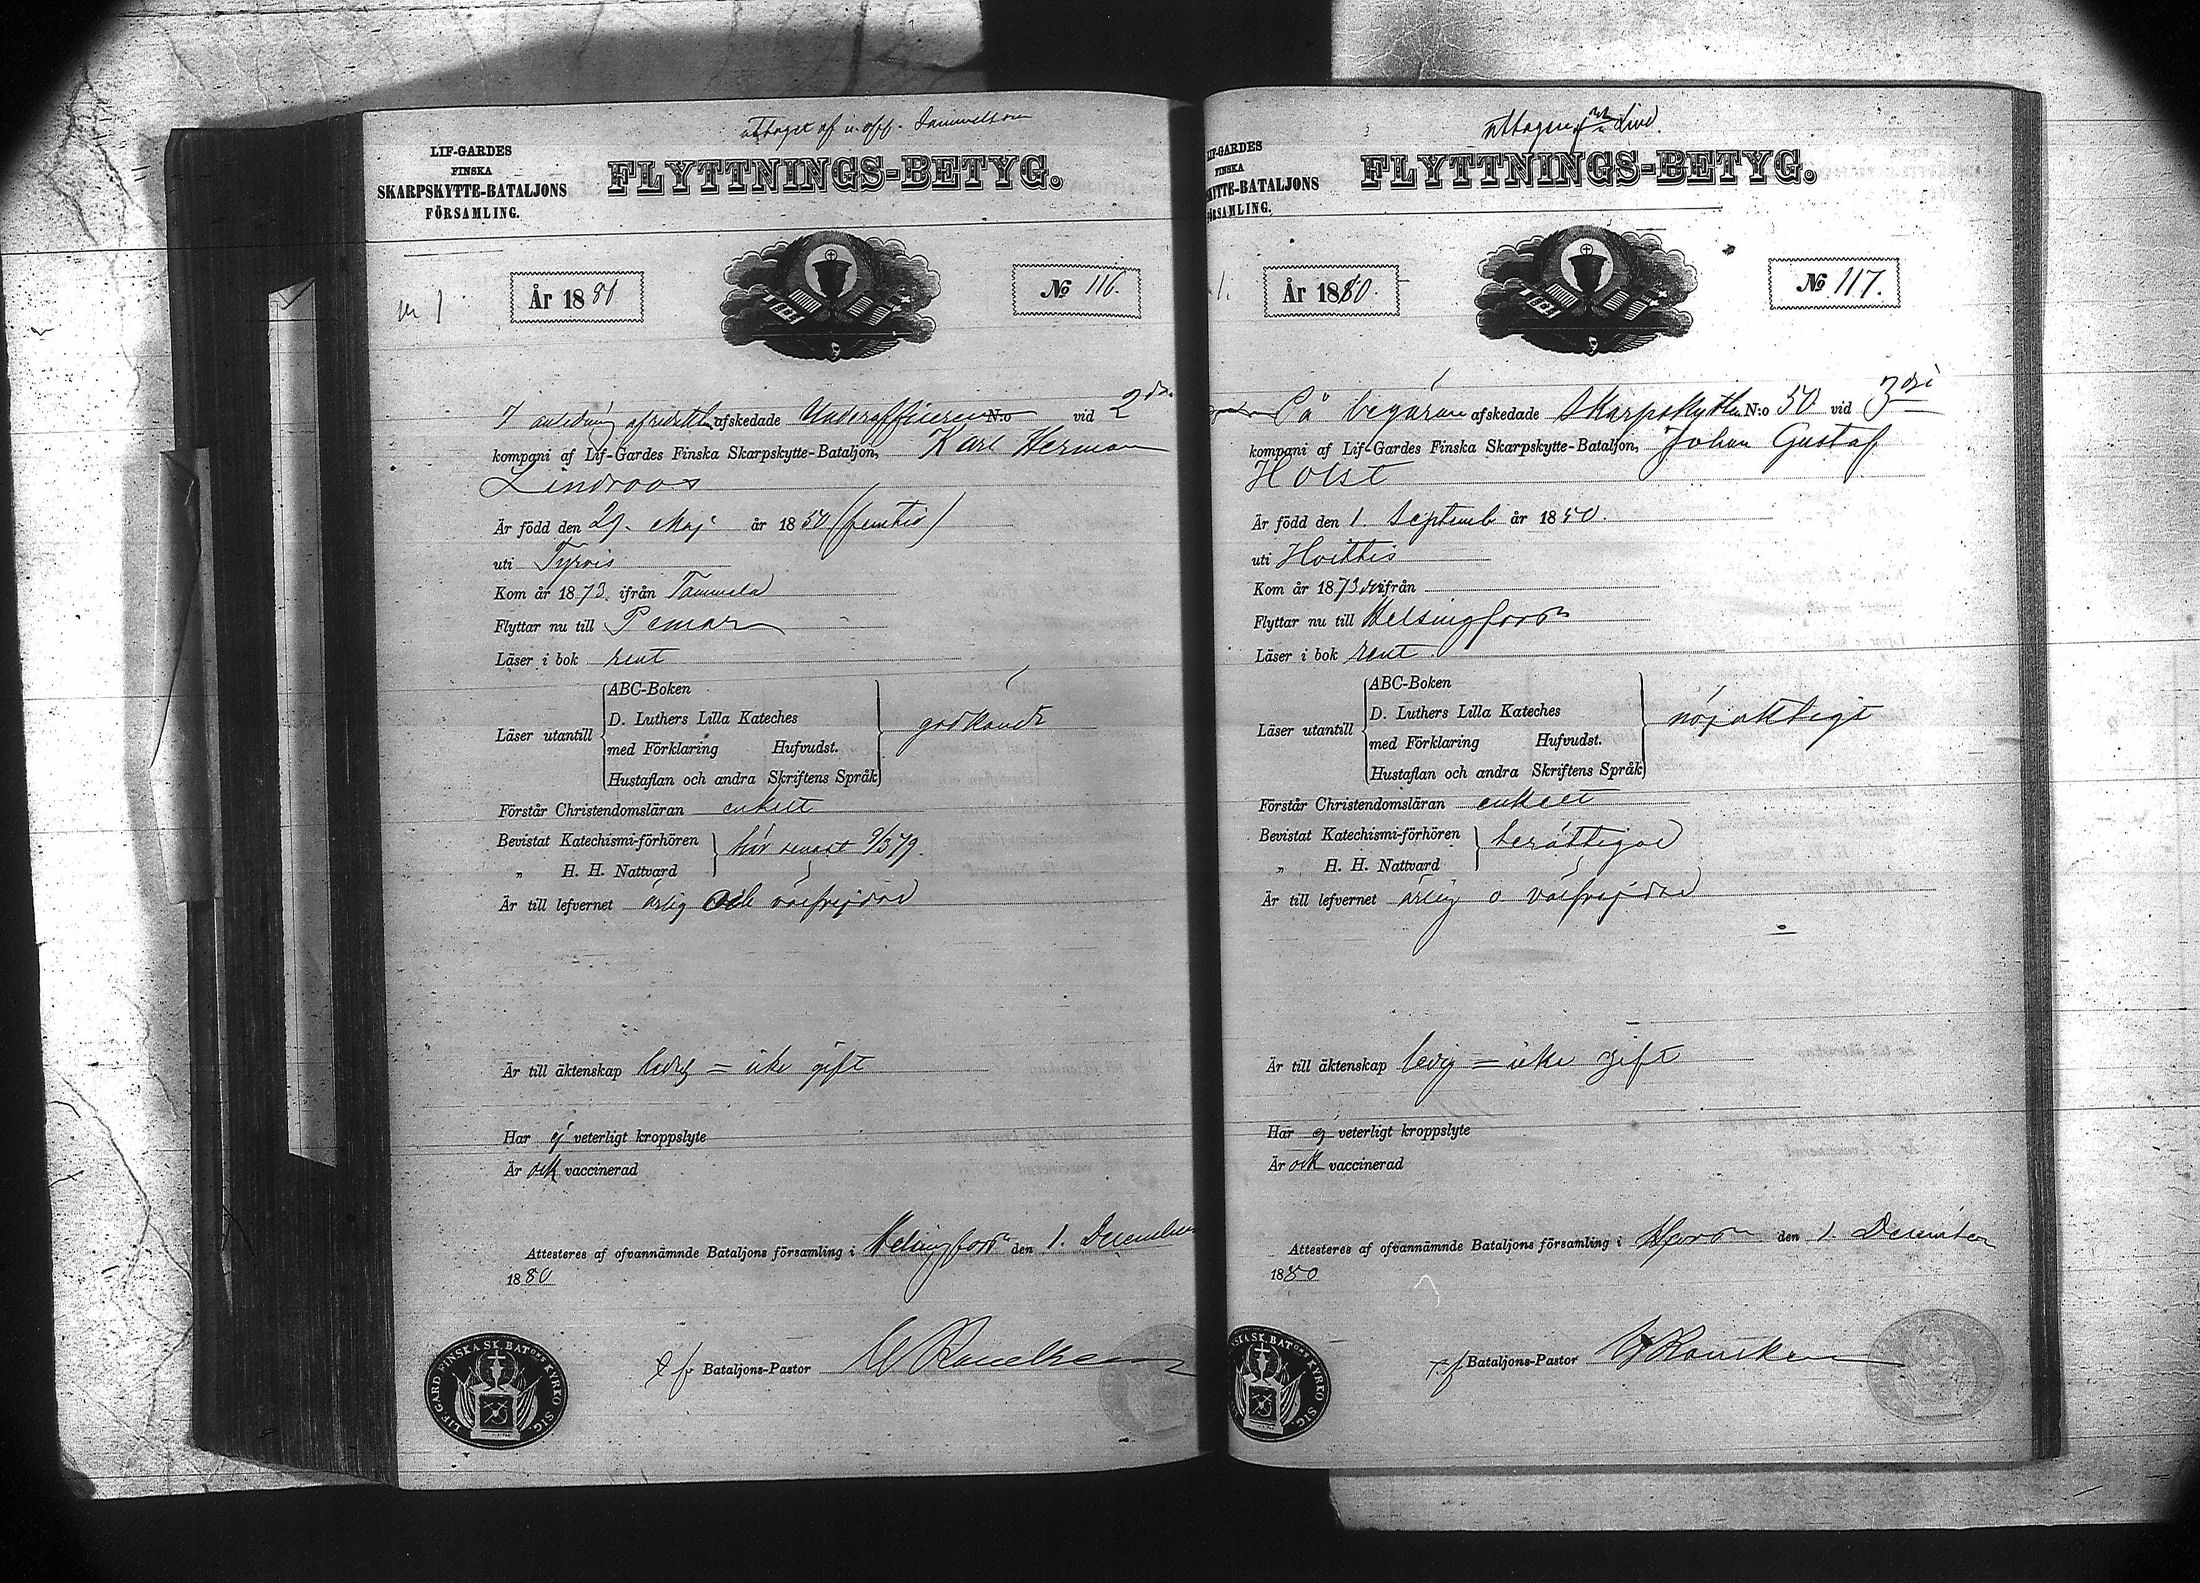 uttaget af u. off. Samuelson
LIF-GARDES
FINSKA
SKARPSKYTTE-BATALJONS
FÖRSAMLING.
FLYTTNINGS-BETYG.
År 1880
No 116.
I anledning af afskedade Underofficeren N:o vid 2dra
kompani af Lif-Gardes Finska Skarpskytte-Bataljon, Karl Herman
Lindroos
Är född den 29. Maj år 1850 (femtio)
uti Tyrvis
Kom år 1873. ifrån Tammela
Flyttar nu till Pemar
Läser i bok rent
Läser utantill
ABC-Boken
D. Luthers Lilla Kateches
med Förklaring Hufvudst.
Hustaflan och andra Skriftens Språk
godkändt
Förstår Christendomsläran enkelt
Bevistat Katechismi-förhören
„ H. H. Nattvard
här senast 9/3 79.
Är till lefvernet ärlig och välfrejdad
Är till äktenskap ledig = icke gift
Har ej veterligt kroppslyte
Är ock vaccinerad
Attesteres af ofvannämnde Bataljons församling i Helsingfors den 1. December
1880
t f Bataljons-Pastor
LIF.GARD.FINSKA SK.BATONS KYRKO SIG.
uttagen af Lind.
LIF-GARDES
FINSKA
SKYTTE-BATALJONS
FÖRSAMLING.
FLYTTNINGS-BETYG.
År 1880.
No 117.
På begäran afskedade Skarpskytten N:o 50 vid 3dje
kompani af Lif-Gardes Finska Skarpskytte-Bataljon, Johan Gustaf
Holst
Är född den 1. Septemb år 1850.
uti Hvittis
Kom år 1873 ifrån
Flyttar nu till Helsingfors
Läser i bok rent.
Läser utantill
ABC-Boken
D. Luthers Lilla Kateches
med Förklaring Hufvudst.
Hustaflan och andra Skriftens Språk
nöjaktigt
Förstår Christendomsläran enkelt
Bevistat Katechismi-förhören
„ H. H. Nattvard
berättigad
Är till lefvernet ärlig o välfrejdad
Är till äktenskap ledig = icke gift
Har ej veterligt kroppslyte
Är ock vaccinerad
Attesteres af ofvannämnde Bataljons församling i H:fors den 1. December
1880
t. f Bataljons-Pastor
SKA SK.BATONS KYRKO SIG.